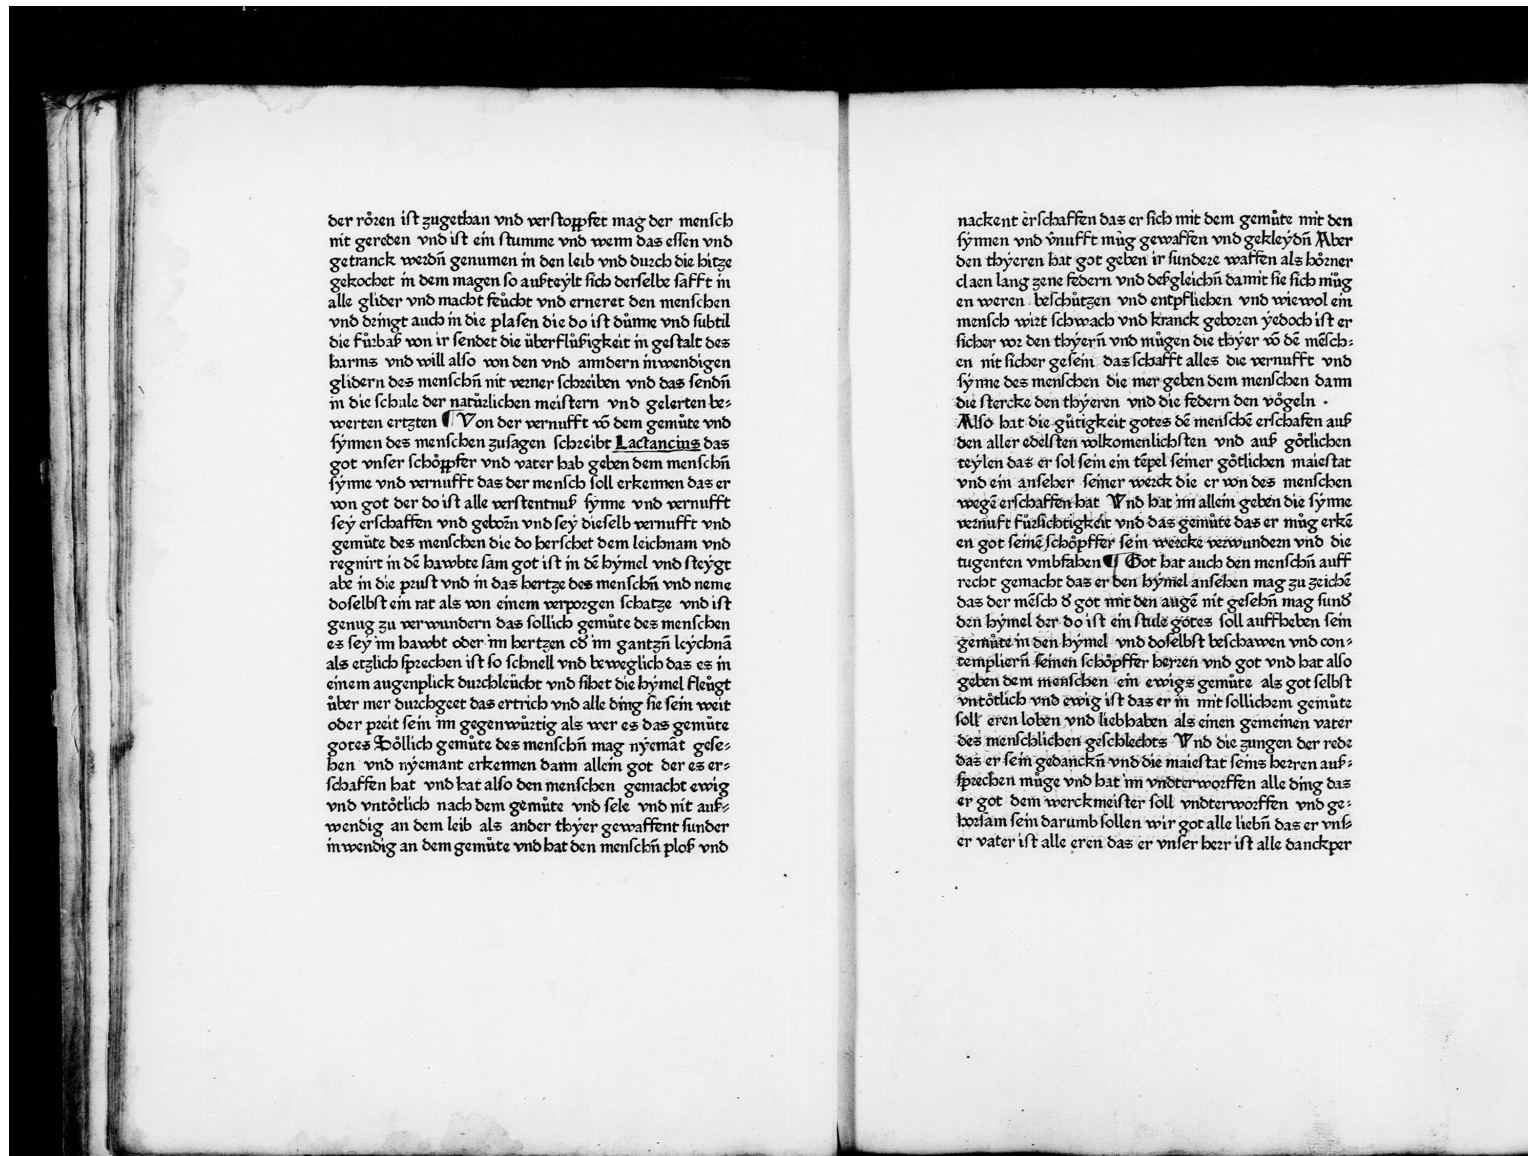 der rören ist zugethan vnd verstoppfet mag der mensch
nit gereden vnd ist ein stumme vnd wenn das essen vnd
getranck werdn̄ genumen in den leib vnd durch die hitze
gekochet in dem magen so außteylt sich derselbe safft in
alle glider vnd macht feücht vnd erneret den menschen
vnd dringt auch in die plasen die do ist důnne vnd subtil
die fůrbaß von ir sendet die überflüßigkeit in gestalt des
harms vnd will also von den vnd anndern inwendigen
glidern des menschn̄ nit verner schreiben vnd das sendn̄
in die schule der natůrlichen meistern vnd gelerten be⸗
werten ertzten ¶ Von der vernufft vō dem gemůte vnd
sÿnnen des menschen zusagen schreibt Lactancius das
got vnser schöppfer vnd vater hab geben dem menschn̄
sÿnne vnd vernufft das der mensch soll erkennen das er
von got der do ist alle verstentnuß sÿnne vnd vernufft
seÿ erschaffen vnd geborn̄ vnd seÿ dieselb vernufft vnd
gemüte des menschen die do herschet dem leichnam vnd
regnirt in dē hawbte sam got ist in dē hÿmel vnd steÿgt
abe in die prust vnd in das hertze des menschn̄ vnd neme
doselbst ein rat als von einem verporgen schatze vnd ist
genug zu verwundern das sollich gemüte des menschen
es seÿ im hawbt oder im hertzen od̕ im gantzn̄ leychnā
als etzlich sprechen ist so schnell vnd beweglich das es in
einem augenplick durchleücht vnd sihet die hÿmel fleůgt
über mer durchgeet das ertrich vnd alle ding sie sein weit
oder preit sein im gegenwůrtig als wer es das gemůte
gotes Söllich gemůte des menschn̄ mag nÿemāt gese⸗
hen vnd nÿemant erkennen dann allein got der es er⸗
schaffen hat vnd hat also den menschen gemacht ewig
vnd vntötlich nach dem gemůte vnd sele vnd nit auß⸗
wendig an dem leib als ander thÿer gewaffent sunder
inwendig an dem gemůte vnd hat den menschn̄ ploß vnd
nackent erschaffen das er sich mit dem gemůte mit den
sÿnnen vnd v̄nufft můg gewaffen vnd gekleÿdn̄ Aber
den thÿeren hat got geben ir sundere waffen als hörner
claen lang zene federn vnd deßgleichn̄ damit sie sich můg
en weren beschůtzen vnd entpfliehen vnd wiewol ein
mensch wirt schwach vnd kranck geboren ÿedoch ist er
sicher vor den thÿern̄ vnd můgen die thÿer vō dē mēsch⸗
en nit sicher gesein das schafft alles die vernufft vnd
sÿnne des menschen die mer geben dem menschen dann
die stercke den thÿeren vnd die federn den vögeln .
Also hat die gůtigkeit gotes dē menschē erschafen auß
den aller edelsten volkomenlichsten vnd auß götlichen
teÿlen das er sol sein ein tēpel seiner götlichen maiestat
vnd ein anseher seiner werck die er von des menschen
wegē erschaffen hat Vnd hat im allein geben die sÿnne
vernuft fůrsichtigkeit vnd das gemůte das er můg erkē
en got seinē schöpffer sein wercke verwundern vnd die
tugenten vmbfahen ¶ Got hat auch den menschn̄ auff
recht gemacht das er den hÿmel ansehen mag zu zeichē
das der mēsch d̕ got mit den augē nit gesehn̄ mag sund̕
den hÿmel der do ist ein stule gotes soll auffheben sein
gemůte in den hÿmel vnd doselbst beschawen vnd con⸗
templiern̄ seinen schöpffer herren vnd got vnd hat also
geben dem menschen ein ewigs gemůte als got selbst
vntötlich vnd ewig ist das er in mit sollichem gemůte
soll eren loben vnd liebhaben als einen gemeinen vater
des menschlichen geschlechts Vnd die zungen der rede
das er sein gedanckn̄ vnd die maiestat seins herren auß⸗
sprechen můge vnd hat im vndterworffen alle ding das
er got dem werckmeister soll vndterworffen vnd ge⸗
horsam sein darumb sollen wir got alle liebn̄ das er vns⸗
er vater ist alle eren das er vnser herr ist alle danckper